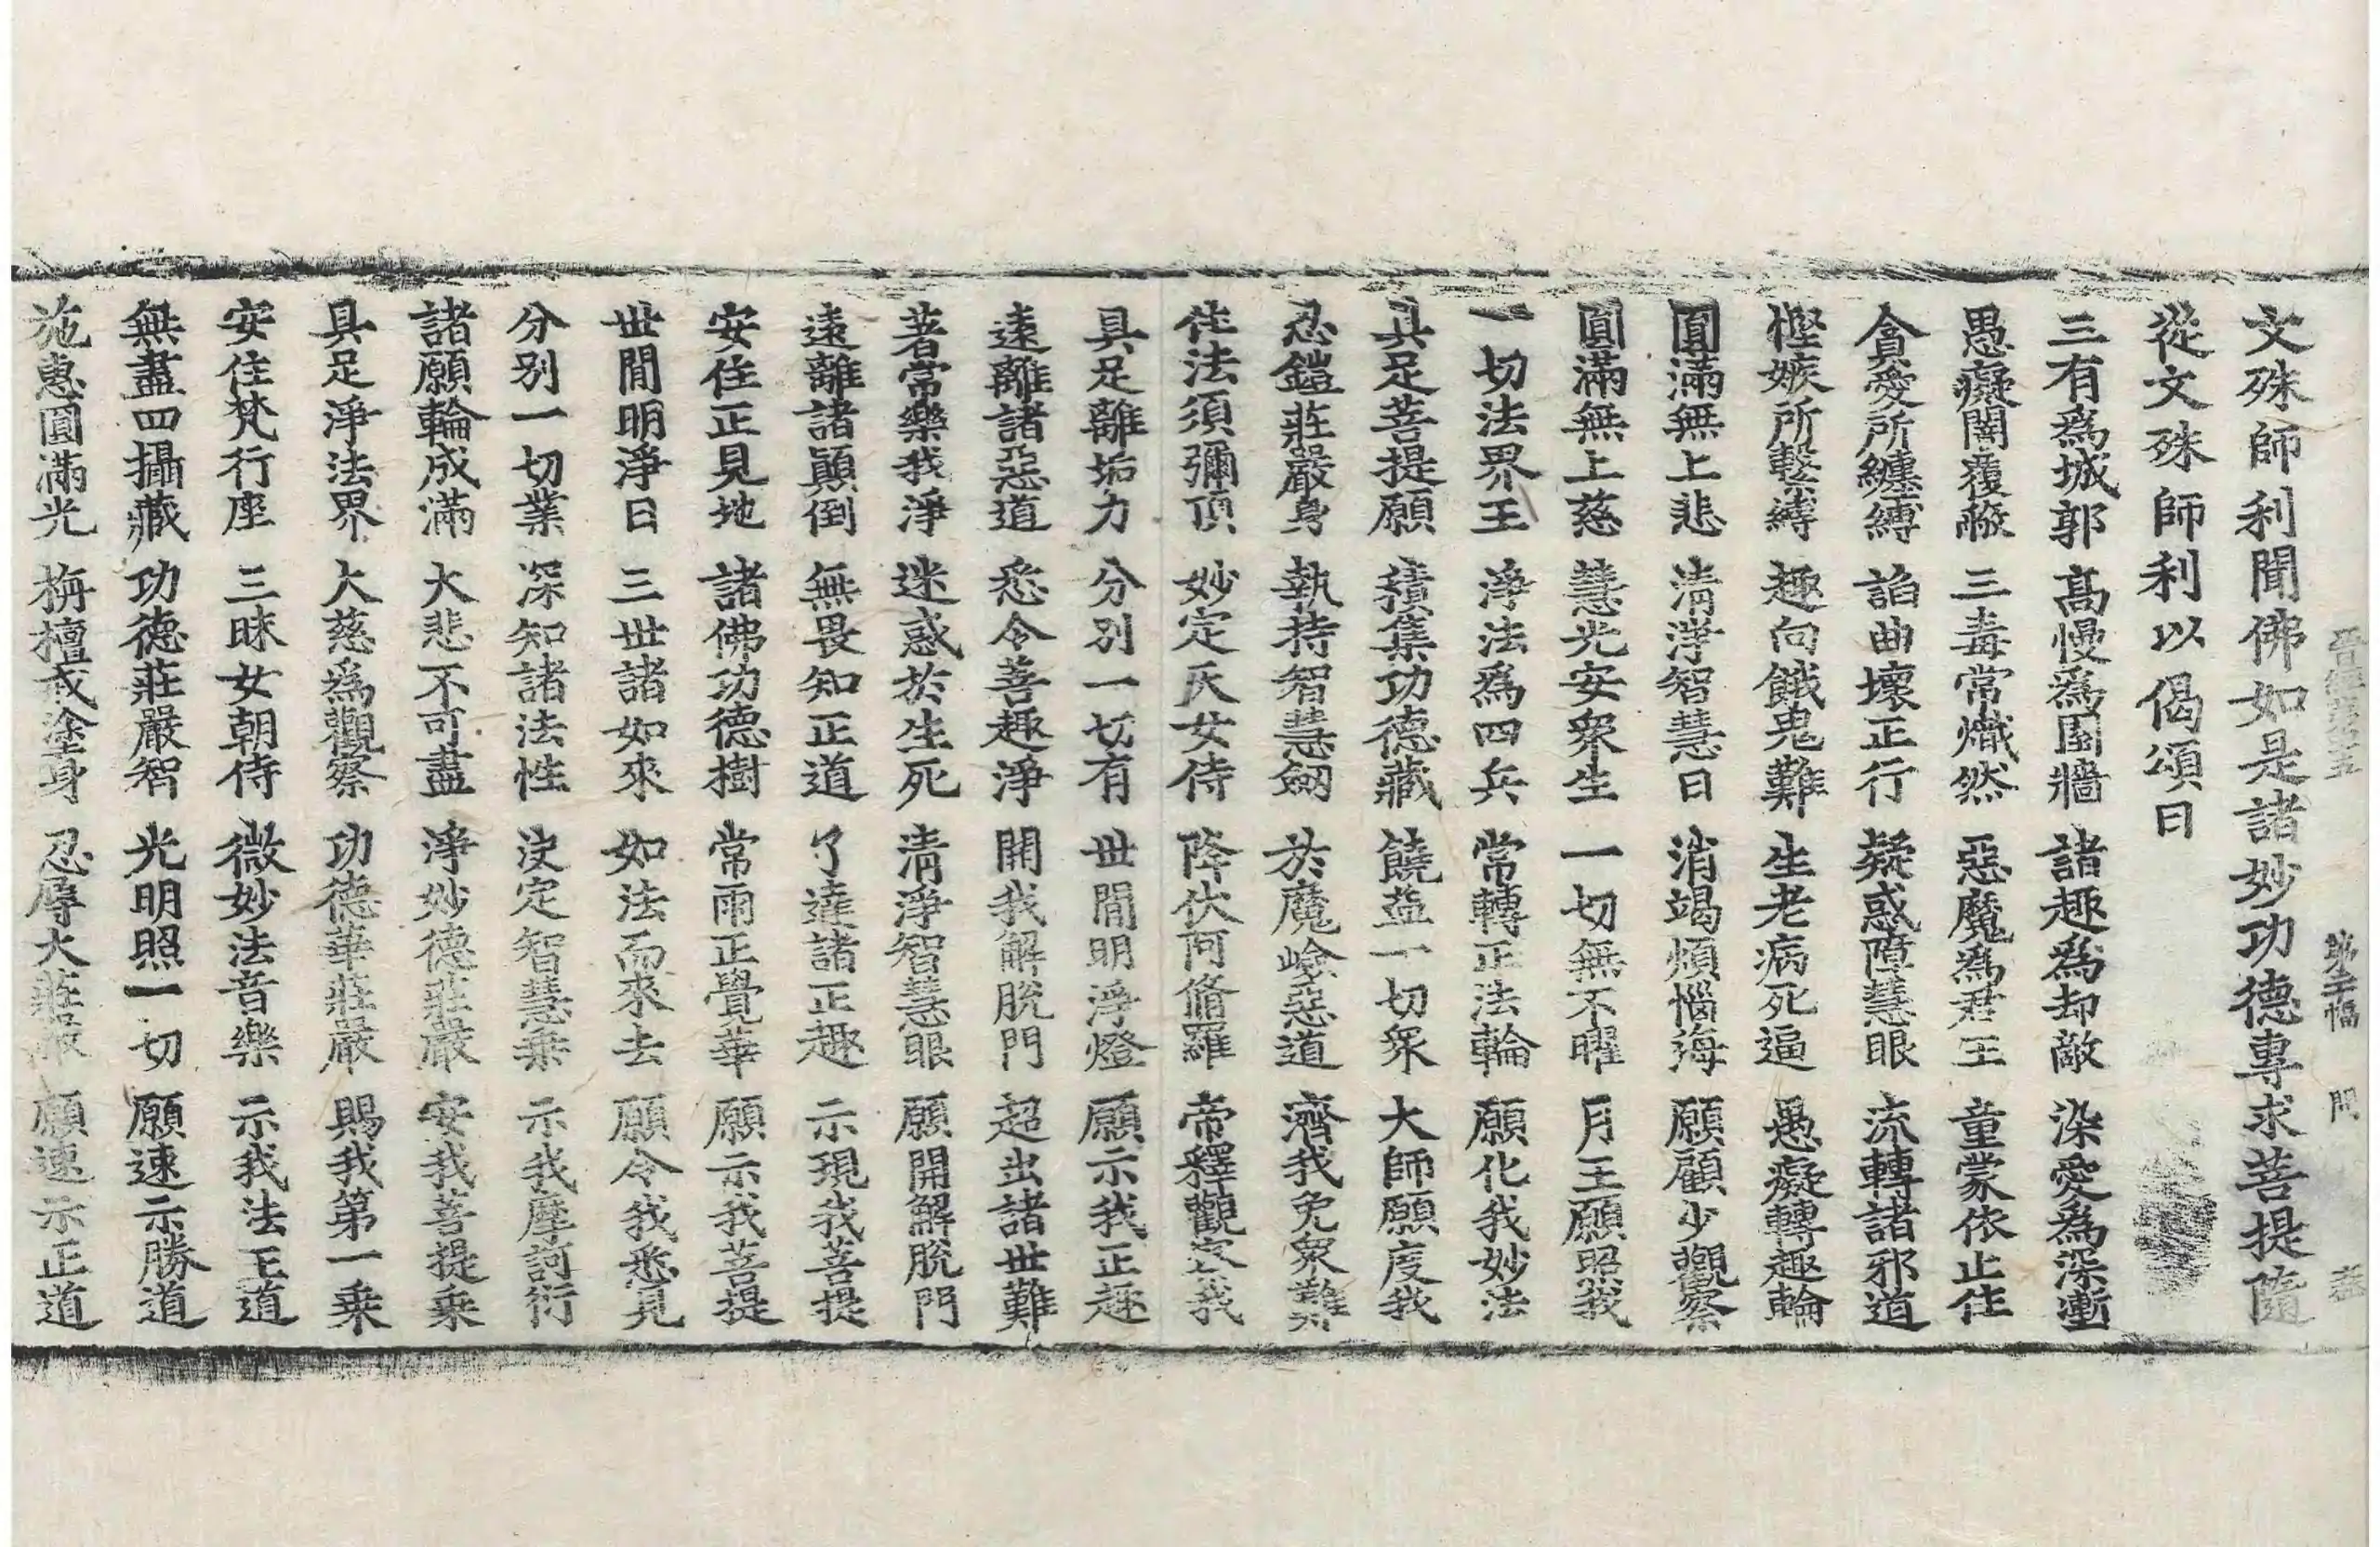 文殊師利聞佛如是諸妙功德專求菩提隨
從文殊師利以偈頌曰
三有爲城郭 高慢爲園牆 諸趣爲却敵 染愛爲深塹
愚癡闇覆蔽 三毒常熾然 惡魔爲君王 童蒙依止住
貪愛所纏縛 諂曲壞正行 疑惑障慧眼 流轉諸邪道
慳嫉所繫縛 趣向餓鬼難 生老病死逼 愚癡轉趣輪
圓滿無上悲 清淨智慧日 消竭煩惱海 願顧少觀察
圓滿無上慈 慧光安衆生 一切無不曜 月王願照我
一切法界王 淨法爲四兵 常轉正法輪 願化我妙法
具足菩提願 積集功德藏 饒益一切衆 大師願度我
忍鎧莊嚴身 執持智慧劒 於魔嶮惡道 濟我免衆難
住法須彌頂 妙定天女侍 降伏阿脩羅 帝釋觀察我
具足離垢力 分別一切有 世間明淨燈 願示我正趣
遠離諸惡道 悉令善趣淨 開我解脫門 超出諸世難
著常樂我淨 迷惑於生死 清淨智慧眼 願開解脫門
遠離諸顚倒 無畏知正道 了達諸正趣 示現我菩提
安住正見地 諸佛功德樹 常雨正覺華 願示我菩提
世間明淨日 三世諸如來 如法而來去 願令我悉見
分別一切業 深知諸法性 決定智慧乘 示我摩訶衍
諸願輪成滿 大悲不可盡 淨妙德莊嚴 安我菩提乘
具足淨法界 大慈爲觀察 功德華莊嚴 賜我第一乘
安住梵行座 三昧女朝侍 微妙法音樂 示我法王道
無盡四攝藏 功德莊嚴智 光明照一切 願速示勝道
施惠圓滿光 栴檀戒塗身 忍辱大莊嚴 願速示正道